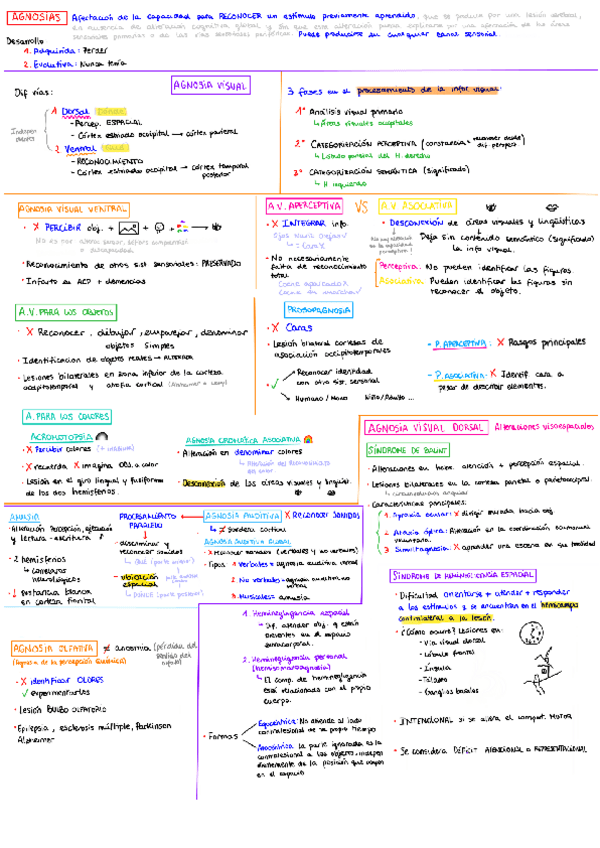 AGNOSIAS Afectación de la capacidad para RECONOCER un estímulo previamente aprendido, que se produce por una lesión cerebral,
en ausencia de alteración cognitiva global, y sin que esa alteración pueda explicarse por una afectación de las áreas
sensoriales primarias o de las vías sensoriales periféricas. Puede producirse en cualquier canal sensorial.
Desarrollo
1. Adquirida: Perder
2. Evolutiva: Nunca tenía
AGNOSIA VISUAL
Dif vías:
1 Dorsal
- Percep. ESPACIAL
- Córtex estriado occipital → córtex parietal
2 Ventral
- RECONOCIMIENTO
- Córtex estriado occipital → córtex temporal
posterior
3 fases en el procesamiento de la infor visual:
1º Análisis visual primario
↳ Áreas visuales occipitales
2º CATEGORIZACIÓN PERCEPTIVA
↳ Lóbulo parietal del H. derecho
3º CATEGORIZACIÓN SEMÁNTICA (significado)
↳ H izquierdo
AGNOSIA VISUAL VENTRAL
• X PERCIBIR obj. +
• Reconocimiento de otros sist sensoriales: PRESERVADO
• Infarto en ACP + demencias
A.V. APERCEPTIVA VS A.V. ASOCIATIVA
• X INTEGRAR info.
• No necesariamente
falta de reconocimiento
total
• DESCONEXIÓN de áreas visuales y lingüísticas
Deja sin contenido semántico (significado)
la info visual.
Perceptiva: No pueden identificar las figuras
Asociativa: Pueden identificar las figuras sin
reconocer el objeto.
A.V. PARA LOS OBJETOS
• X Reconocer, dibujar, emparejar, denominar
objetos simples
• Identificación de objetos reales → ALTERADA
• Lesiones bilaterales en zona inferior de la corteza
occipitotemporal y atrofia cortical
PROSOPAGNOSIA
• X Caras
• Lesión bilateral cortezas de
asociación occipitotemporales
• ✓ Reconocer identidad
con otro sist. sensorial
Humano / Mono Niño/Adulto ...
- P. APERCEPTIVA: X Rasgos principales
- P. ASOCIATIVA: X Identif cara a
pesar de describir elementos.
A. PARA LOS COLORES
ACROMATOPSIA
• X Percibir colores
• X recuerda X imagina obj. a color
• Lesión en el giro lingual y fusiforme
de los dos hemisferios.
AGNOSIA CROMÁTICA ASOCIATIVA
• Alteración en denominar colores
• Desconexión de las áreas visuales y linguis.
AGNOSIA VISUAL DORSAL Alteraciones visoespaciales
SÍNDROME DE BALINT
• Alteraciones en proc. atención + percepción espacial.
• Lesiones bilaterales en la corteza parietal o parietoccipital.
• Características principales:
1 Apraxia ocular: X dirigir mirada hacia obj
2 Ataxia óptica: Alteración en la coordinación visomanual
voluntaria.
3 Simultagnosia: X aprender una escena en su totalidad
AMUSIA
• Alteración percepción, ejecución
y lectura - escritura
• 2 hemisferios
↳ correlatos
neurológicos
• ↓ sustancia blanca
en corteza frontal
PROCESAMIENTO
PARALELO
- discriminar y
reconocer sonidos
- ubicación
espacial
AGNOSIA AUDITIVA X RECONOCER SONIDOS
↳ ≠ sordera cortical
AGNOSIA AUDITIVA GLOBAL
• X Reconocer sonidos (verbales y no verbales)
• Tipos 1 Verbales = agnosia auditiva verbal
2 No verbales = agnosia auditiva no
verbal
3 Musicales = amusia
SÍNDROME DE HEMINEGLIGENCIA ESPACIAL
• Dificultad orientarse + atender + responder
a los estímulos q se encuentran en el hemicampo
contralateral a la lesión.
• ¿Cómo ocurre? Lesiones en:
- Vía visual dorsal
- Lóbulo frontal
- Ínsula
- Tálamo
- Ganglios basales
• INTENCIONAL si se altera el comport. MOTOR
• Se considera DÉFICIT ATENCIONAL o REPRESENTACIONAL
AGNOSIA OLFATIVA ≠ anosmia (pérdida del
sentido del
olfato)
• X identificar OLORES
✓ experimentarlos
• Lesión BULBO OLFATORIO
• Epilepsia, esclerosis múltiple, Parkinson
Alzheimer
1. Heminegligencia espacial
↳ Dif. atender obj. q están
presentes en el espacio
extracorporal.
2. Heminegligencia personal
(hemisomatoagnosia)
↳ El comp. de heminegligencia
está relacionado con el propio
cuerpo.
• Formas
Egocéntrica: No atiende al lado
contralesional de su propio cuerpo
Alocéntrica: la parte ignorada es la
contralesional a los objetos, indepen
dientemente de la posición que ocupen
en el espacio